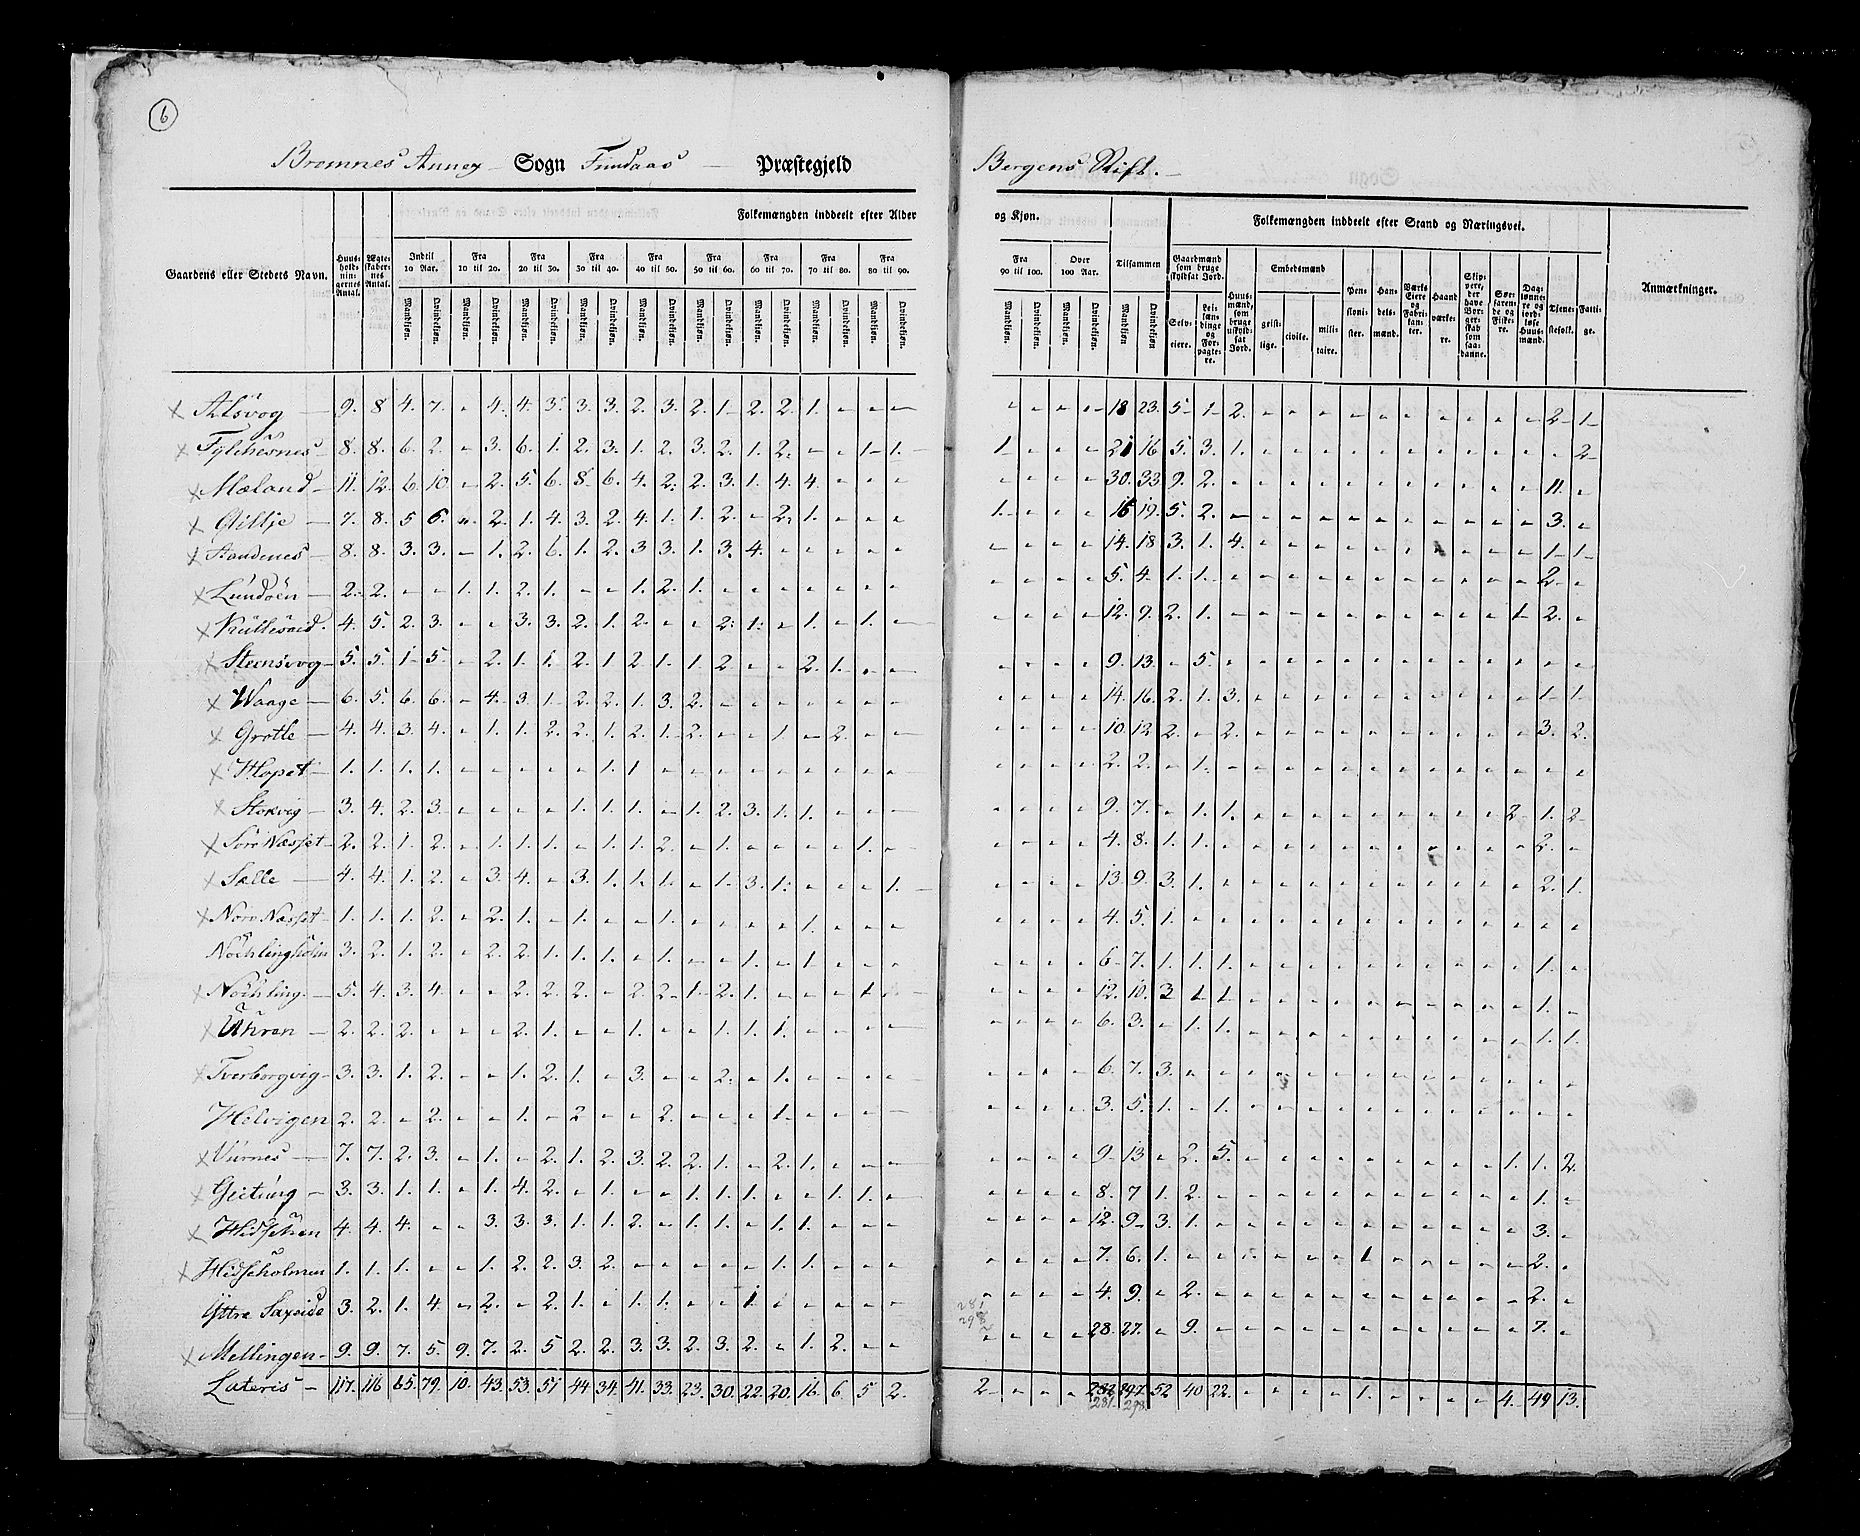 6
Bremnes Annex Sogn Findaas Præstegjeld Bergens Stift.
Folkemængden inddeelt efter Alder og Kjøn. Folkemængden inddeelt efter Stand og Næringsvei.
Gaardens eller Stedets Navn. Huus-holdnin-gernes Antal. Ægte-skaber-nes Antal. Indtil 10 Aar. Fra 10 til 20. Fra 20 til 30. Fra 30 til 40. Fra 40 til 50. Fra 50 til 60. Fra 60 til 70. Fra 70 til 80. Fra 80 til 90. Fra 90 til 100. Over 100 Aar. Tilsammen Gaardmænd som bruge skyldsat Jord. Embedsmænd Anmærkninger.
Mandkjøn. Qvindekjøn. Selv-eiere. Lei-læn-dinge og For-pagte-re. Huus-mænd, som bruge uskyld-sat Jord. geist-lige. civile. mili-taire. Pen-sioni-ster. Han-dels-mænd. Værks Eiere og Fabri-kan-ter. Haand værke-re. Skip-pere, der have Bor-ger-skab som saa-danne. Søe-faren-de og Fiske-re. Dag-lønne-re og jord-løse Huus-mænd. Tjene-stefolk. Fatti-ge.
Alsvog 9. 8 4. 7. " 4. 4. 3. 3. 3. 2. 3. 2. 1 2. 2. 1. " " " " " " " 18 23. 5 1 2. " " " " " " " " " " 2 1
Fylchesnes 8. 8. 6. 2. " 3. 6. 1. 2. 3. 1. 2. 3. 2. 1. 2. " " 1 1. 1 " " " 21 16 5. 3. 1. " " " " " " " " " " " 2
Mæland 11. 12. 6. 10. " 2. 5. 6. 8 6. 4. 2. 2. 3. 1. 4. 4. " " " " " " " 30. 33 9. 2. " " " " " " " " " " " 11. "
Gillje 7. 8. 5 6. " 2. 1. 4. 3. 2. 4. 1. 1. 2. " 2. 1. " " " 1. " " " 16 19. 5. 2. " " " " " " " " " " " 3. "
Aandenes 8. 8. 3. 3. " 1. 2. 6. 1. 2. 3 3. 1. 3. 4. " " " " " " " " " 14. 18 3. 1. 4. " " " " " " " " " " 1 1
Lundöen 2. 2. " " 1. 1. 2. 1. " " 1. 2. 1. " " " " " " " " " " " 5. 4. 1. 1. " " " " " " " " " " " 2. "
Kullesaed. 4. 5. 2. 3. " " 3. 3. 2. 1. 2. " " 2. 1. " 1. " 1. " " " " " 12. 9. 2. 1. " " " " " " " " " " 1 2. "
Steensvog 5. 5. 1 5. " 2. 1. 1. 2. 1 2. 1. 1. 2. " " 2. 1. " " " " " " 9. 13. " 5. " " " " " " " " " " " " "
Waage 6. 5. 6. 6. " 4. 3. 1. 2. 2. 1. 3. 2. " " " " " " " " " " " 14. 16. 2. 1. 3. " " " " " " " " " " 1 1.
Grotle 4. 4. 3. 4. " 1. 1. 2. 2. 1. 2. 1. 2. " " 1. " 2. " " " " " " 10. 12 2. " 2. " " " " " " " " " " 3. 2.
Hopet 1. 1. 1. 1. " " " " " 1. 1. " " " " " " " " " " " " " 2. 2. " 1. " " " " " " " " " " " " "
Stokvig 3. 4. 2. 3. " " " " 1. 1. 1. " 1. 2. 3. 1. 1. " " " " " " " 9. 7. " 1. 1. " " " " " " " " " 2 1. 2
Sörr Næsset 2. 2. 1. 2. " 1. 1. 1. " 1. 1. 2. " 1. " " " " 1. " " " " " 4. 8. 1. 1. " " " " " " " " " " " 2. "
Sælle 4. 4. 1. 2. " 3. 4. " 3. 1. 1. 1. " 1. 3. 1. " " " 1. " " " " 13. 9. 3. 1. " " " " " " " " " " " 2. 1.
Norr Næsset 1. 1. 1. 2. " 2. 1. " 1. " " 1. " " " " 1. " " " " " " " 4. 5. 1. " " " " " " " " " " " " " "
Nöchlingholm 3. 2. 1. 2. " 2. 2. 1. 1. 1. " 1. " " 1. " 1. " " " " " " " 6 7. 1. 1. 1. " " " " " " " " " " 1. "
Nöchling 5. 4. 3. 4. " " 2. 2. 2. " 2. 2. 1. 2. 1. " " " 1 " " " " " 12. 10. 3 1 1. " " " " " " " " " " 1. "
Uhren 2. 2. 2. " " " 2. 1. " " 1. " " 1. 1. 1. " " " " " " " " 6. 3. " 1. 1. " " " " " " " " " " 1. 1.
Tverborgvig 3. 3. 1. 2. " " 1. 2. 1. " 3. " " 2. " 1. " " " " " " " " 6. 7. 3. " " " " " " " " " " " " " "
Helvigen 2. 2. " 2. " " 1. " 2 " " 2. " " " 1. " " " " " " " " 3. 5. 1. " 1. " " " " " " " " " " " "
Vurnes 7. 7. 2. 3. " 1. " 2. 1. 2. 3. 2. 2. 1. " 2. 1. " " " " " " " 9 13 " 2. 5. " " " " " " " " " 1. 1. 2.
Geitung 3. 3. 1. 1. " 1. 4. 2. " 1. " " 1. 1. 1. " " 1. 1. " " " " " 8. 7 1. 2. " " " " " " " " " " " 1. "
Hidsehen 4. 4. 4. " " 3. 3. 3. 1. 1. 2. " 1. 1. " 1. 1. " " " " " " " 12. 9 3. 1. " " " " " " " " " " " 3. "
Hidseholmen 1. 1. 1. " " 1. 2. 2. 3. 2. " " " " " 1. 1. " " " " " " " 7. 6. 1. " " " " " " 1 " " " " " 2. "
Yttre Saxeide 3. 2. 1. 4. " 2. " 2. 1. " 1. 1. " " 1 " " " " " " " " " 4. 9. " 2. " " " " " " " " " " " 2. "
281
298
Mellingen 9. 9. 7. 5. 9. 7. 2. 5 2. 2. 3. 3. 2. 3. 2. " 1. 2. " " " " " " 28. 27. " 9. " " " " " " " " " " " 7. "
Lateris 117. 116 65. 79. 10. 43. 53. 51 44 34. 41. 33. 23. 30. 22. 20. 16. 6. 5 2. 2 " " " 282 297. 52 40 22. " " " 1. " " " " " 4. 49 13.
281 298.